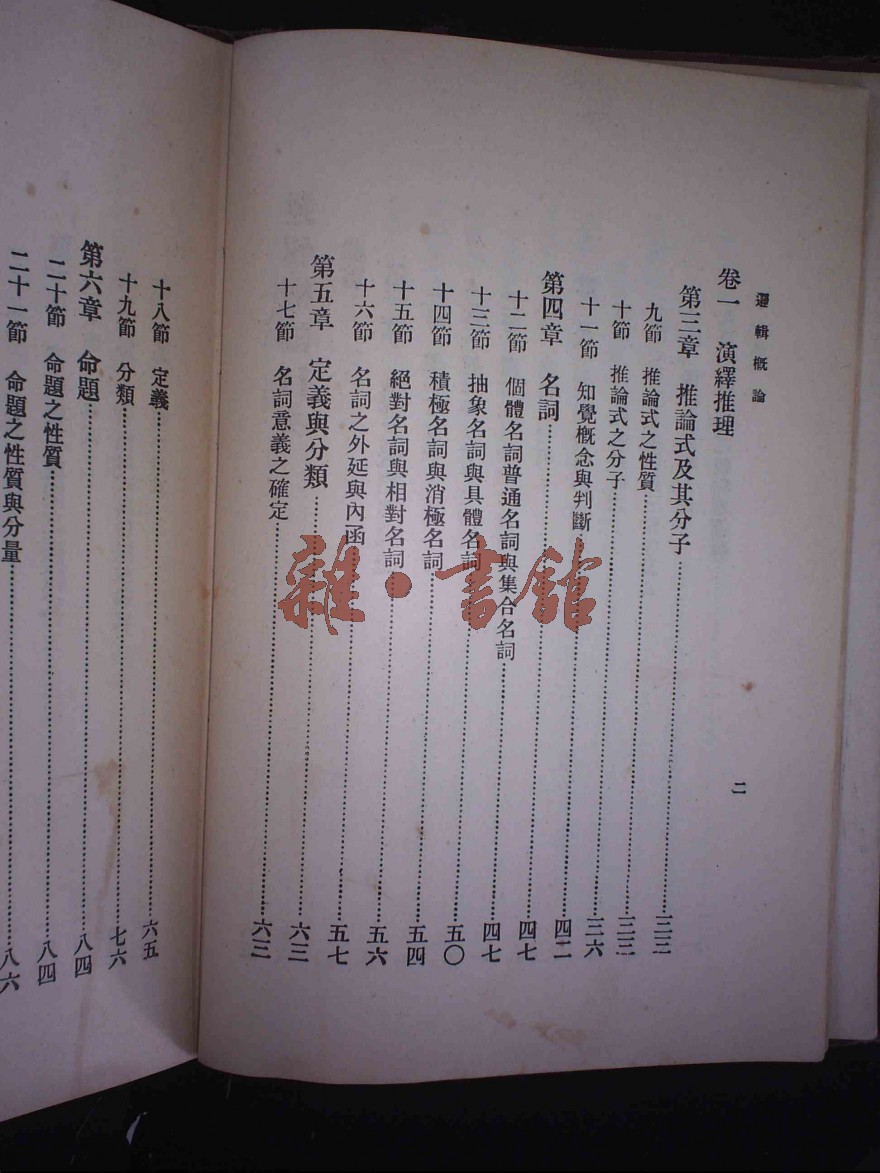 邏輯概論
二
卷一 演繹推理
第三章 推論式及其分子……三三
九節 推論式之性質……三三
十節 推論式之分子……三六
十一節 知覺概念與判斷……四二
第四章 名詞……四七
十二節 個體名詞普通名詞與集合名詞……四七
十三節 抽象名詞與具體名詞……五〇
十四節 積極名詞與消極名詞……五四
十五節 絕對名詞與相對名詞……五六
十六節 名詞之外延與內函……五七
第五章 定義與分類……六三
十七節 名詞意義之確定……六三
十八節 定義……六五
十九節 分類……七六
第六章 命題……八四
二十節 命題之性質……八四
二十一節 命題之性質與分量……八六
雜·書館